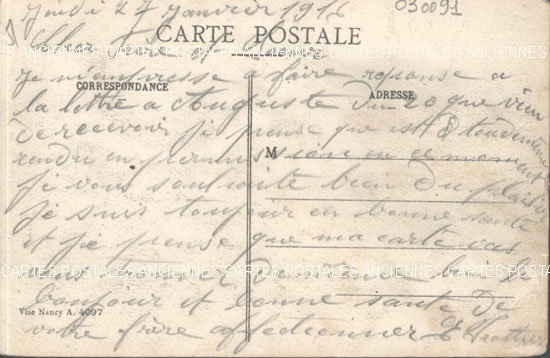 Jeudi 27 Janvier 1916
030091
CARTE POSTALE
CARTES POSTALES ANCIENNES CARTES POSTALES ANCIENNES
Je m'empresse a faire reponse a
CORRESPONDANCE
ADRESSE
la lettre a Auguste du 20 que vien
de recevoir je pense que
M
rendu en permission en ce moment
je vous souhaite bien du plaisir
je suis toujour en bonne sante
et je pense que ma carte vas
vous trouver de meme
CARTES POSTALES ANCIENNES CARTES POSTALES ANCIENNES
bonjour et bonne sante de
Vise Nancy A. 4097
votre frère affectionner